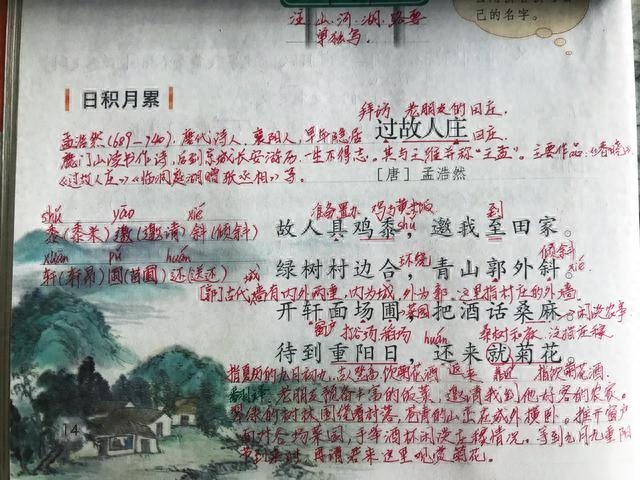 注:山、河、湖、路要
单独写。
己的名字。
日积月累
拜访 老朋友的田庄。
过故人庄 田庄。
孟浩然(689—740),唐代诗人。襄阳人,早年隐居
鹿门山读书作诗,后到京城长安游历,一生不得志。其与王维并称“王孟”。主要作品:《春晓》
《过故人庄》《临洞庭湖赠张丞相》等。
[唐] 孟浩然
shǔ yāo xié
黍(黍米)邀(邀请)斜(倾斜)
准备置办 鸡肉黄米饭 到
故人具鸡黍,邀我至田家。
shǔ
xuān pǔ huán
轩(轩昂)圃(苗圃)还(送还)
环绕 倾斜
绿树村边合,青山郭外斜。
xié
[郭]古代城墙有内外两重,内为城,外为郭。这里指村庄的外墙
开轩面场圃,把酒话桑麻。
菜园 闲谈农事
窗户 打谷场 稻场 huán 桑树和麻
待到重阳日,还来就菊花。
指夏历的九月初九 饮菊花酒 返来 指饮菊花酒
老朋友预备丰富的饭菜,邀请我到他好客的农家。
翠绿的树林围绕着村落,苍青的山峦在城外横卧。推开窗户
面对谷场菜园,手举酒杯闲谈庄稼情况。等到九月九重阳
节到来时,再请君来这里观赏菊花。
14